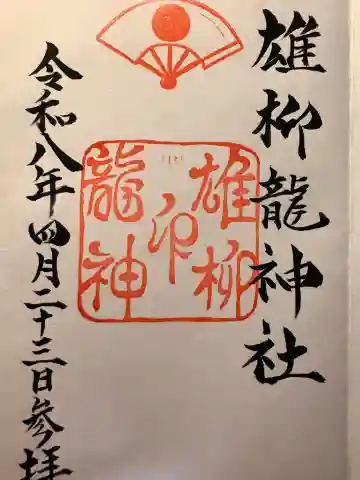 雄柳龍神社
雄柳
印
龍神
令和八年四月二十三日参拝